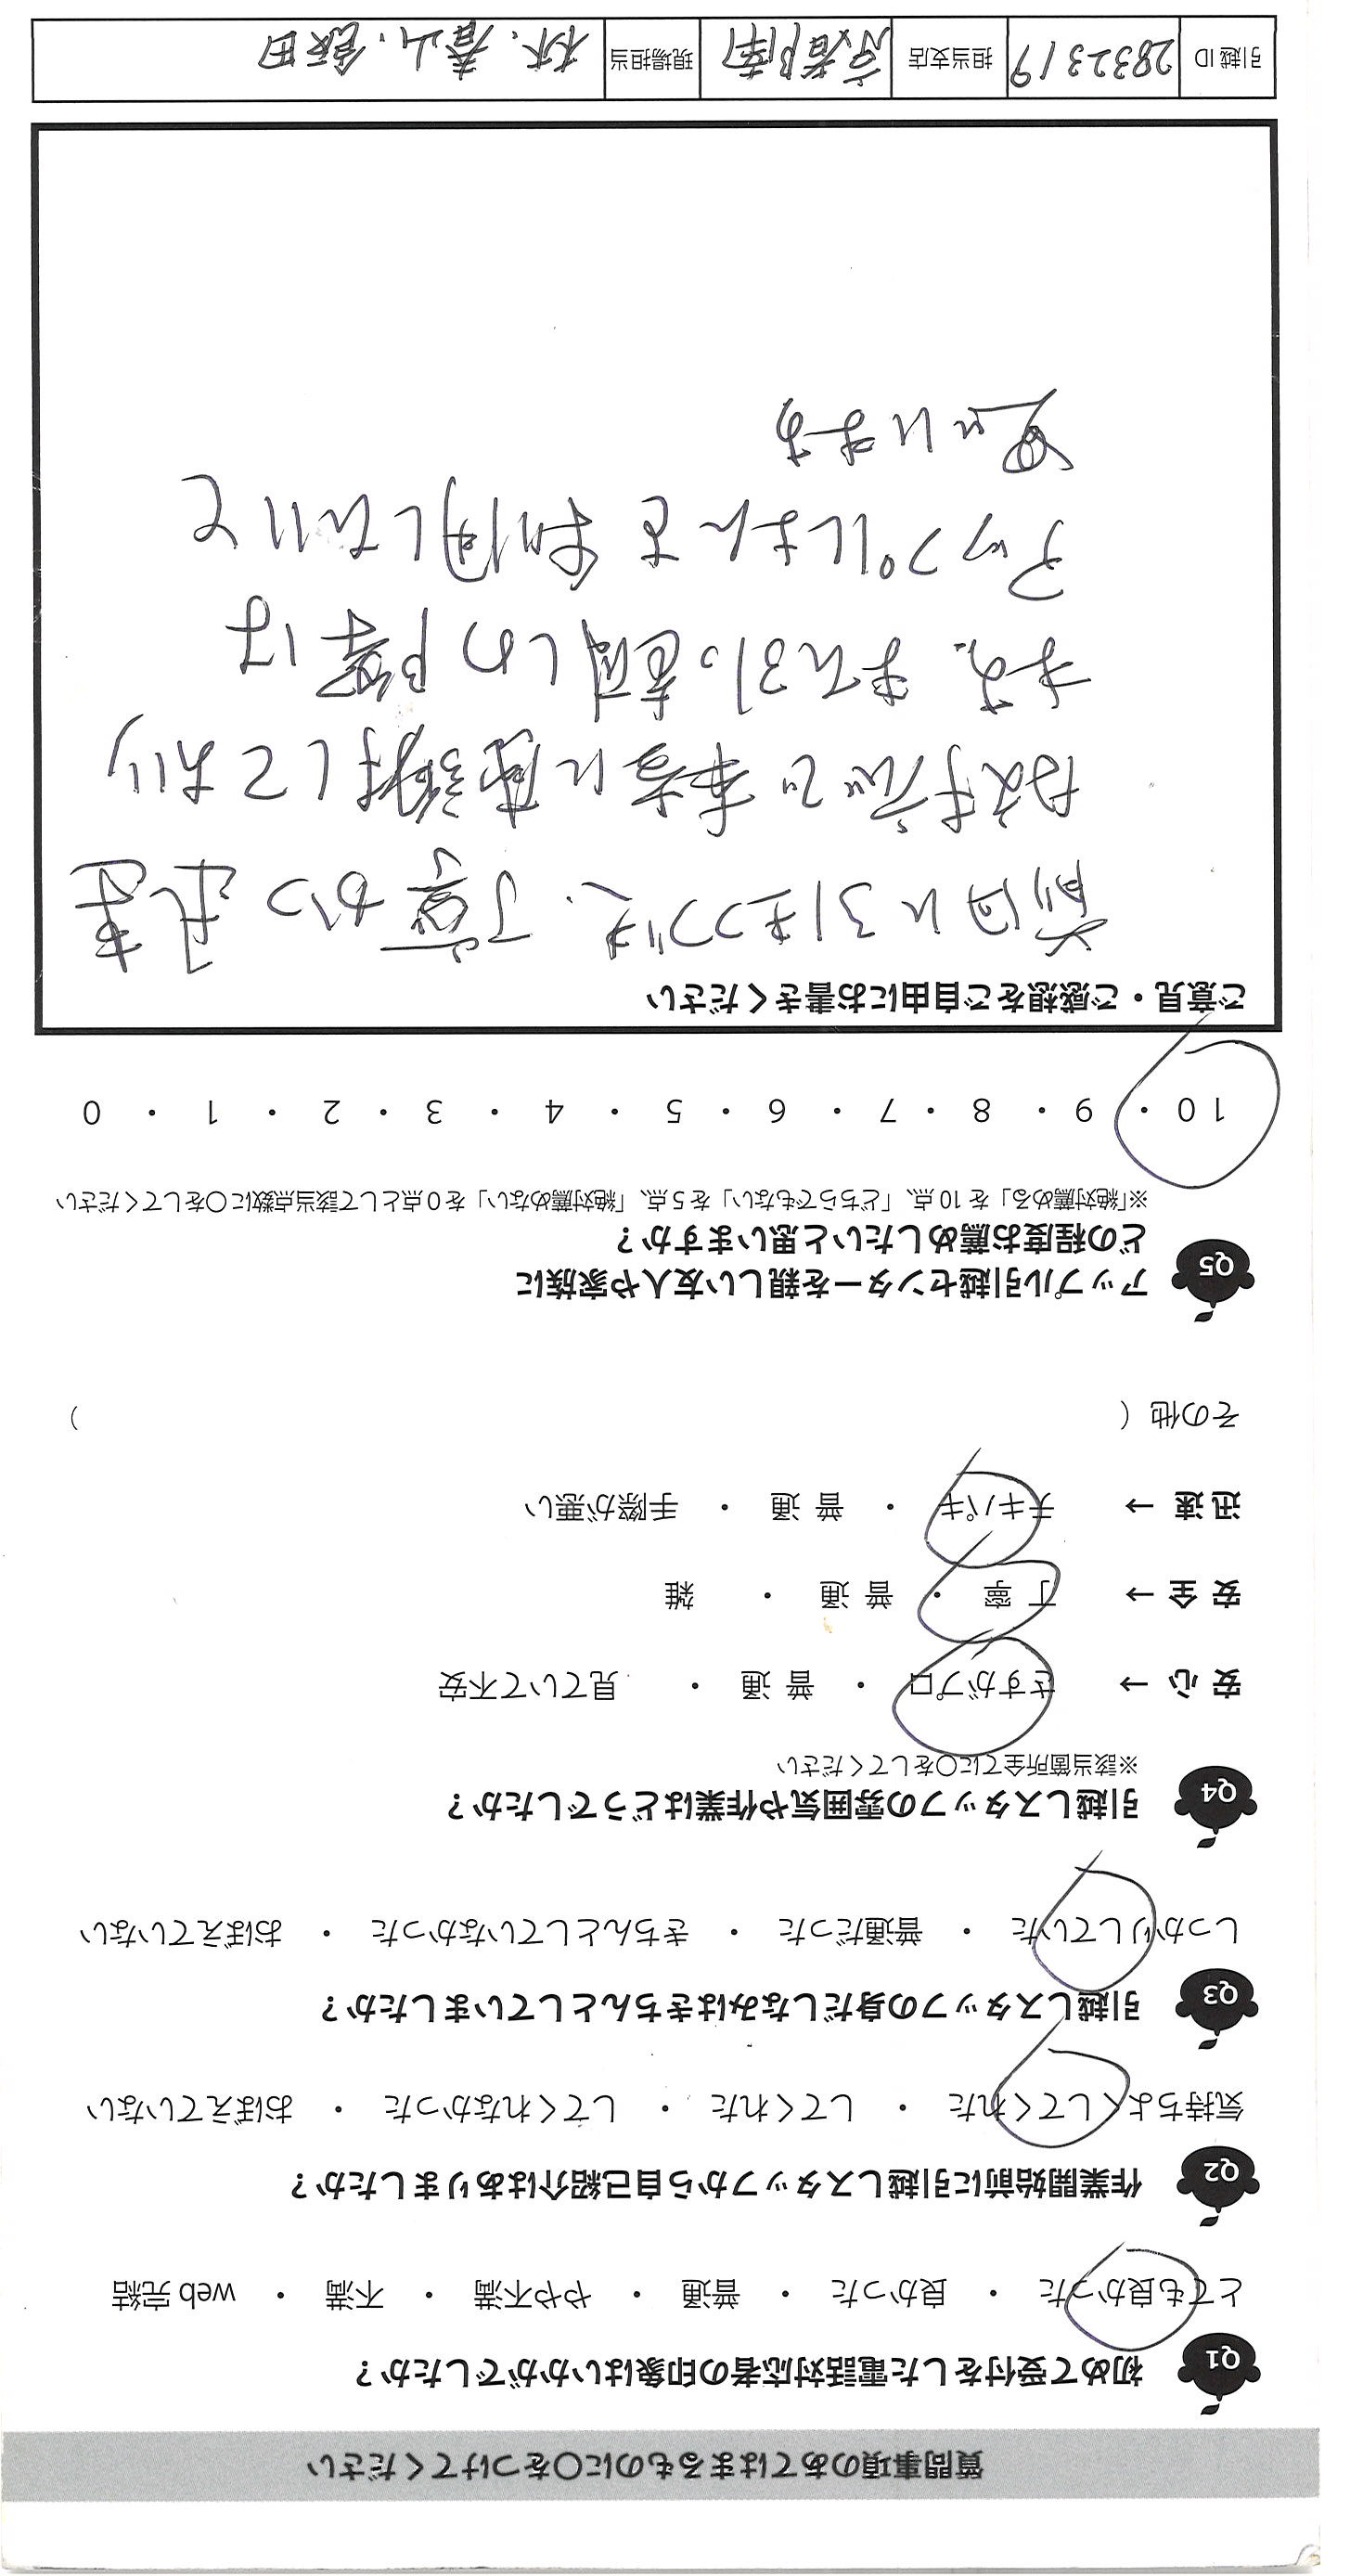 質問事項のあてはまるものに〇をつけてください
Q1 初めて受付をした電話対応者の印象はいかがでしたか？
とても良かった ・ 良かった ・ 普通 ・ やや不満 ・ 不満 ・ web 完結
Q2 作業開始前に引越しスタッフから自己紹介はありましたか？
気持ちよくしてくれた ・ してくれた ・ してくれなかった ・ おぼえていない
Q3 引越しスタッフの身だしなみはきちんとしていましたか？
しっかりしていた ・ 普通だった ・ きちんとしていなかった ・ おぼえていない
Q4 引越しスタッフの雰囲気や作業はどうでしたか？
※該当箇所全てに〇をしてください
安 心 → さすがプロ ・ 普 通 ・ 見ていて不安
安 全 → 丁 寧 ・ 普 通 ・ 雑
迅 速 → テキパキ ・ 普 通 ・ 手際が悪い
その他（ ）
Q5 アップル引越センターを親しい友人や家族に
どの程度お薦めしたいと思いますか？
※「絶対薦める」を 10 点、「どちらでもない」を 5 点、「絶対薦めない」を 0 点として該当点数に〇をしてください
10 ・ 9 ・ 8 ・ 7 ・ 6 ・ 5 ・ 4 ・ 3 ・ 2 ・ 1 ・ 0
ご意見・ご感想をご自由にお書きください
前回に引きつづき、丁寧かつ迅速
な対応で本当に感謝しており
ます。また引っ越しの際は
アップルさんを利用したいと
思います
引越 ID 2832319 担当支店 京都南 現場担当 林、春山、飯田